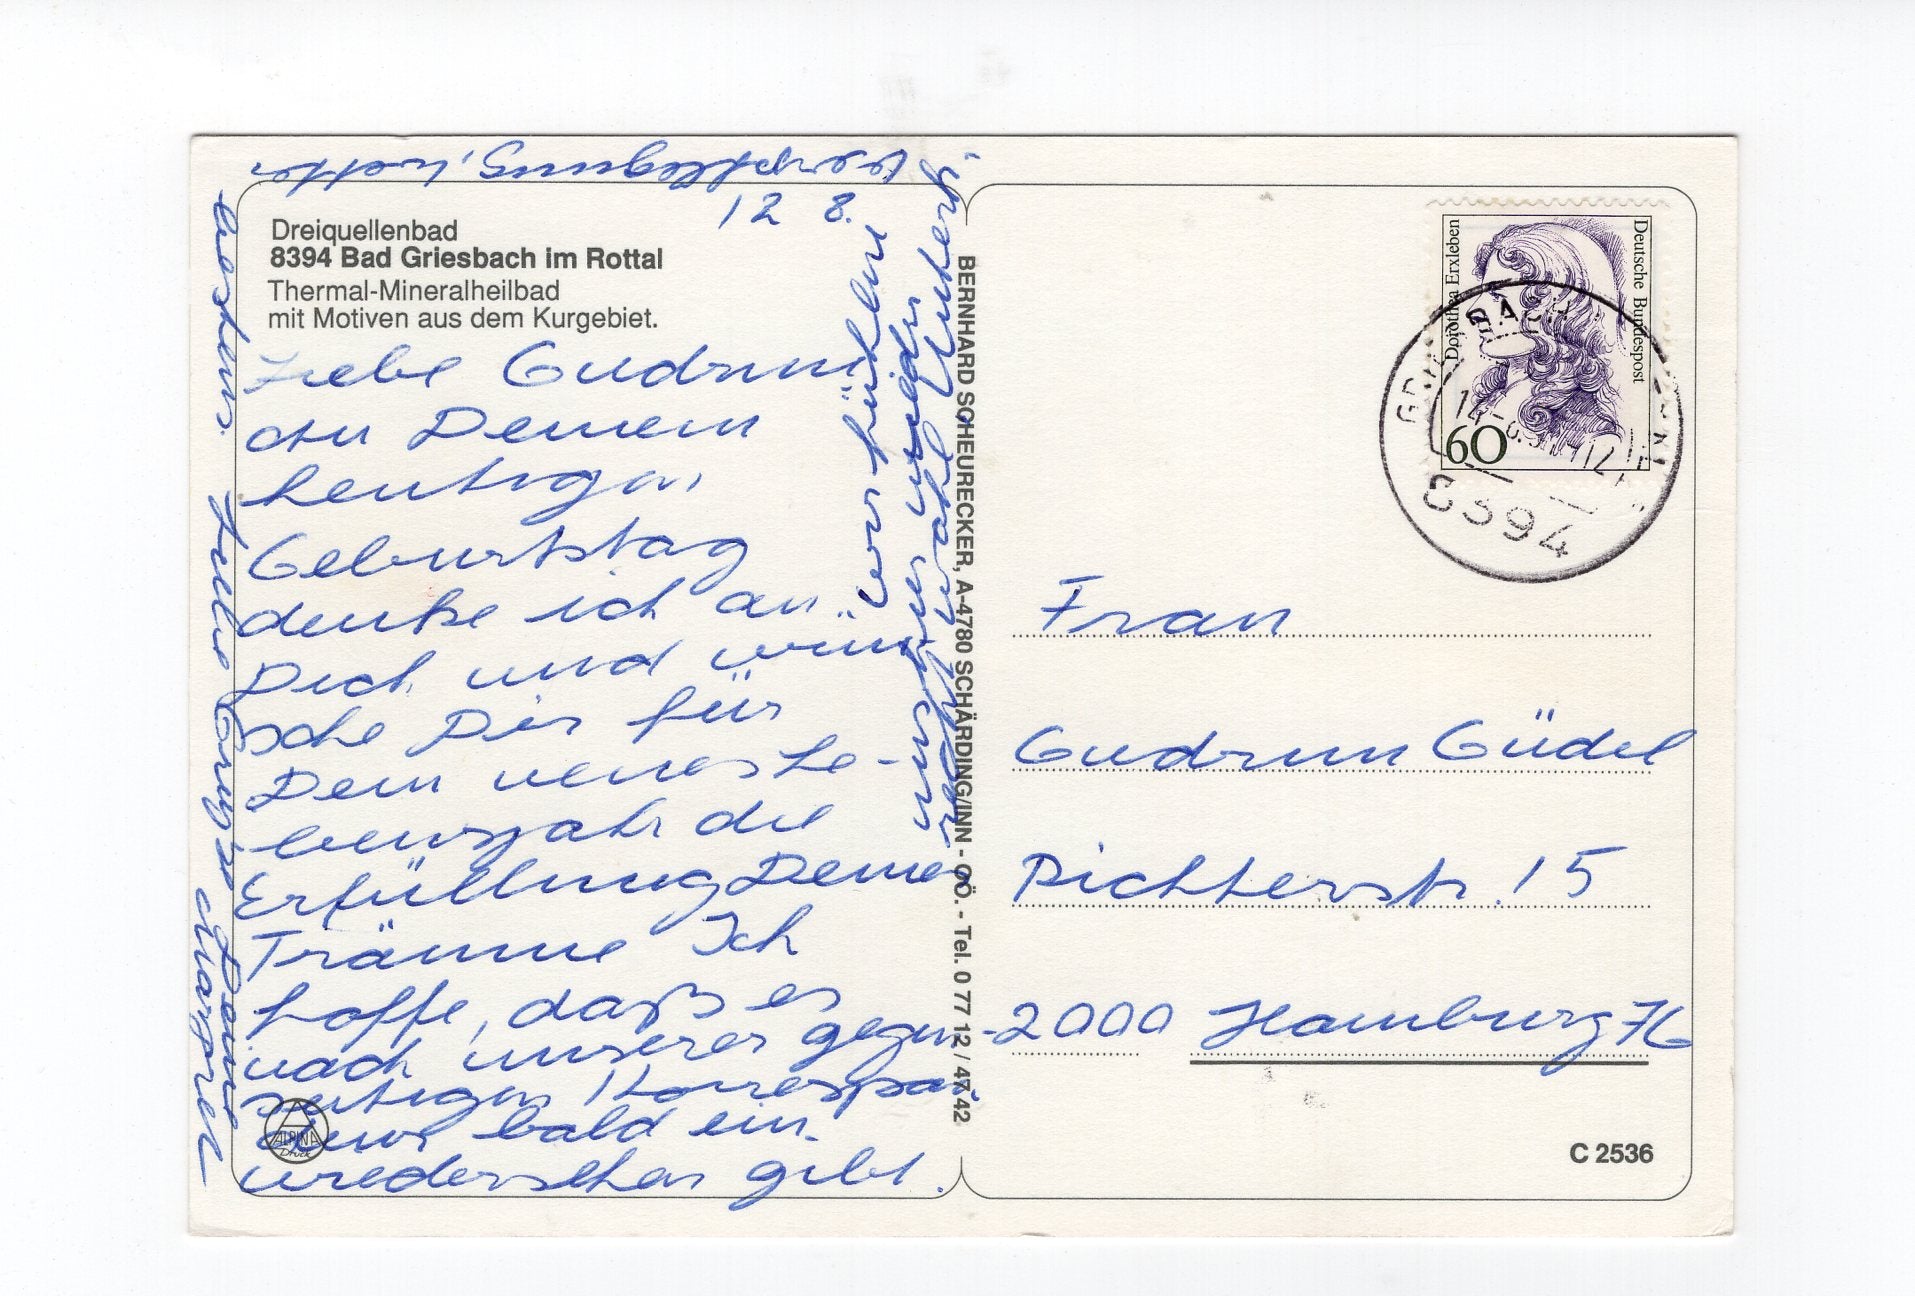 Dreiquellenbad
8394 Bad Griesbach im Rottal
Thermal-Mineralheilbad
mit Motiven aus dem Kurgebiet.
12 8.
Liebe Gudrun
an Deinem
heutigen
Geburtstag
denke ich an
Dich und wün
sche Dir für
Dein neues Le-
bensjahr die
Erfüllung Deiner
Träume Ich
hoffe, daß es
nach unserer gegen-
seitigen Korrespon
denz bald ein
wiedersehen gibt.
Wir fühlen
uns hier wieder
sehr wohl
Verpflegung, Wetter
bestens. Liebe Grüße Deine
Margret
BERNHARD SCHEURECKER, A-4780 SCHÄRDING/INN - OÖ. - Tel. 0 77 12 / 47 42
ALPINA
Druck
Deutsche Bundespost
Dorothea Erxleben
60
8394
Frau
Gudrun Güdel
Richterstr. 15
2000 Hamburg 76
C 2536